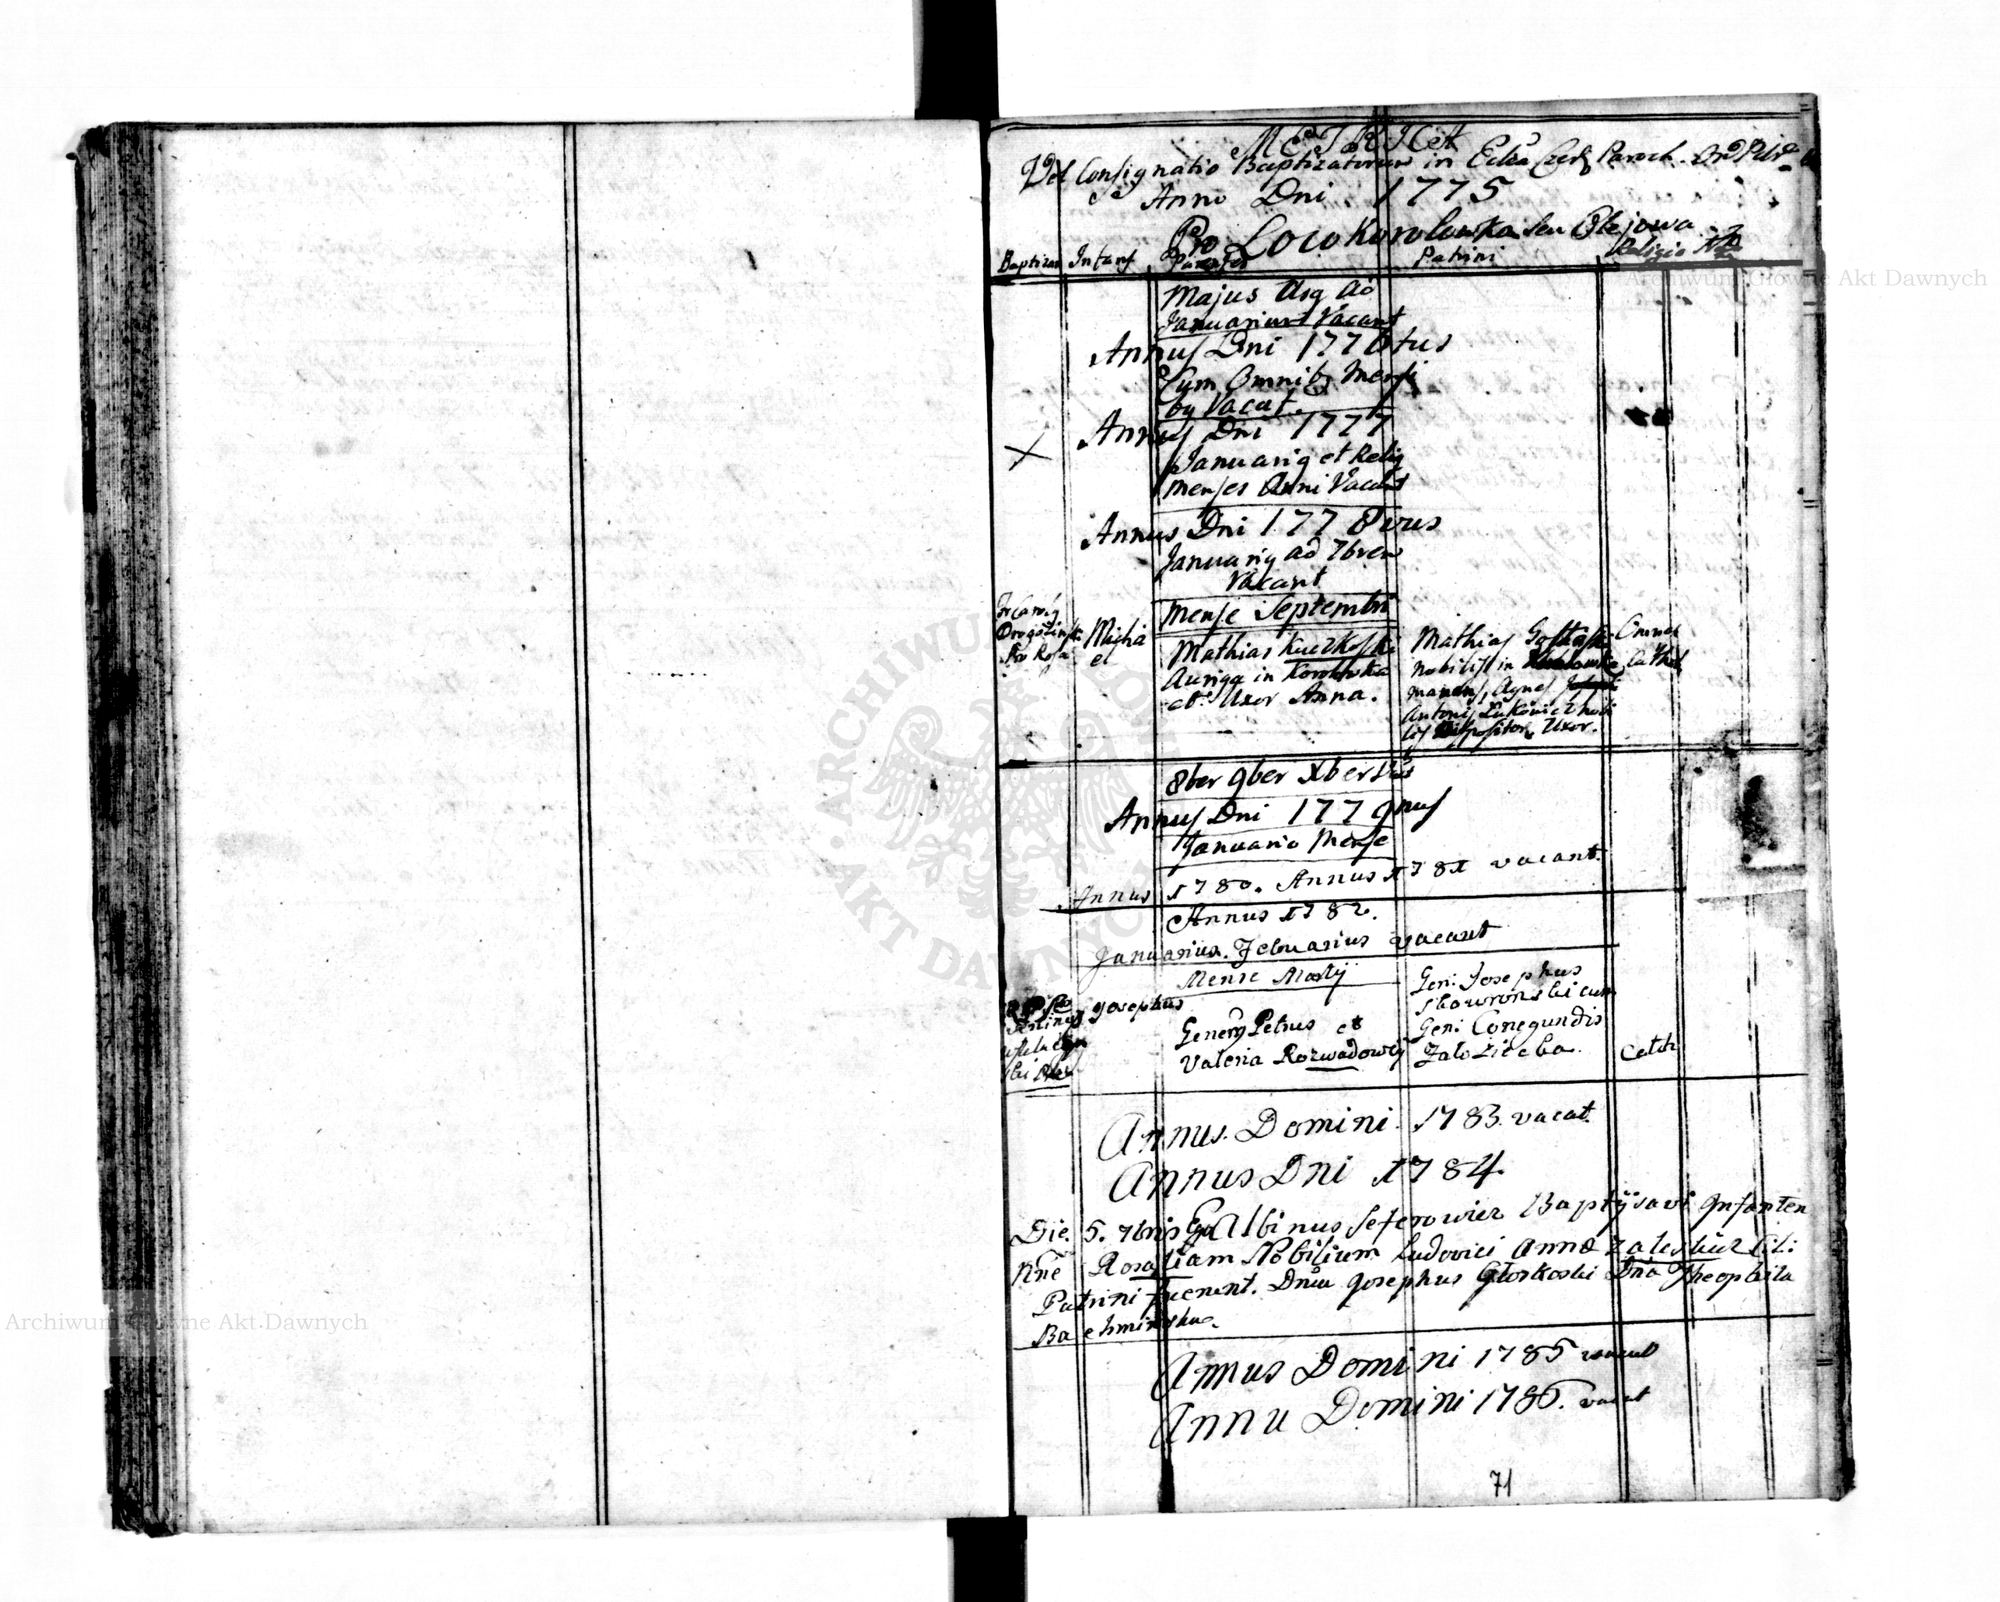 METRICA
Vel Consignatio Baptizatorum in Eccla Paroch.
Anno Dni 1775
Pro Loco Korolowka seu Olejowa
Baptizans Infans Parentes Patrini Religio
Majus usq ad
Januarium Vacant
Annus Dni 1776tus
Cum Omnibq Mensi
bq Vacat.
Annus Dni 1777
Januariq et Reliq
menses Anni Vacant
Annus Dni 1778vus
Januariq ad 7brem
Vacant
Mense Septembri
Micha
el
Mathias Kuczkoski
Auriga in Korolowka
et Uxor Anna.
Mathias
nobilis in
manens, Agnes
Antonij Lukowicz nobi
lis Dispositoris Uxor.
Omnes
Cathol
8ber 9ber Xber
Annus Dni 1779nus
Januario Mense
Annus 1780. Annus 1781 vacant.
Annus 1782.
Januarius. Februarius vacant
Mense Martij
Josephus
Generoq Petrus et
Valeria Rozwadowscij
Gen: Josephus
Skowronski cum
Gen: Conegundis
Zaloziecka.
Cath
Annus Domini 1783 vacat
Annus Dni 1784
Die. 5. 7bris Ego Albinus Seferowicz Baptysavi Infantem
Nne Rosaliam Nobilium Ludovici Anna Zaleskich
Patrini fuerunt. Dnus Josephus Gloskoski Dna Theophila
Bachminska.
Annus Domini 1785 vacat
Annu Domini 1786. vacat
71
Archiwum Główne Akt Dawnych
Archiwum Główne Akt Dawnych
ARCHIWUM GŁÓWNE
AKT DAWNYCH